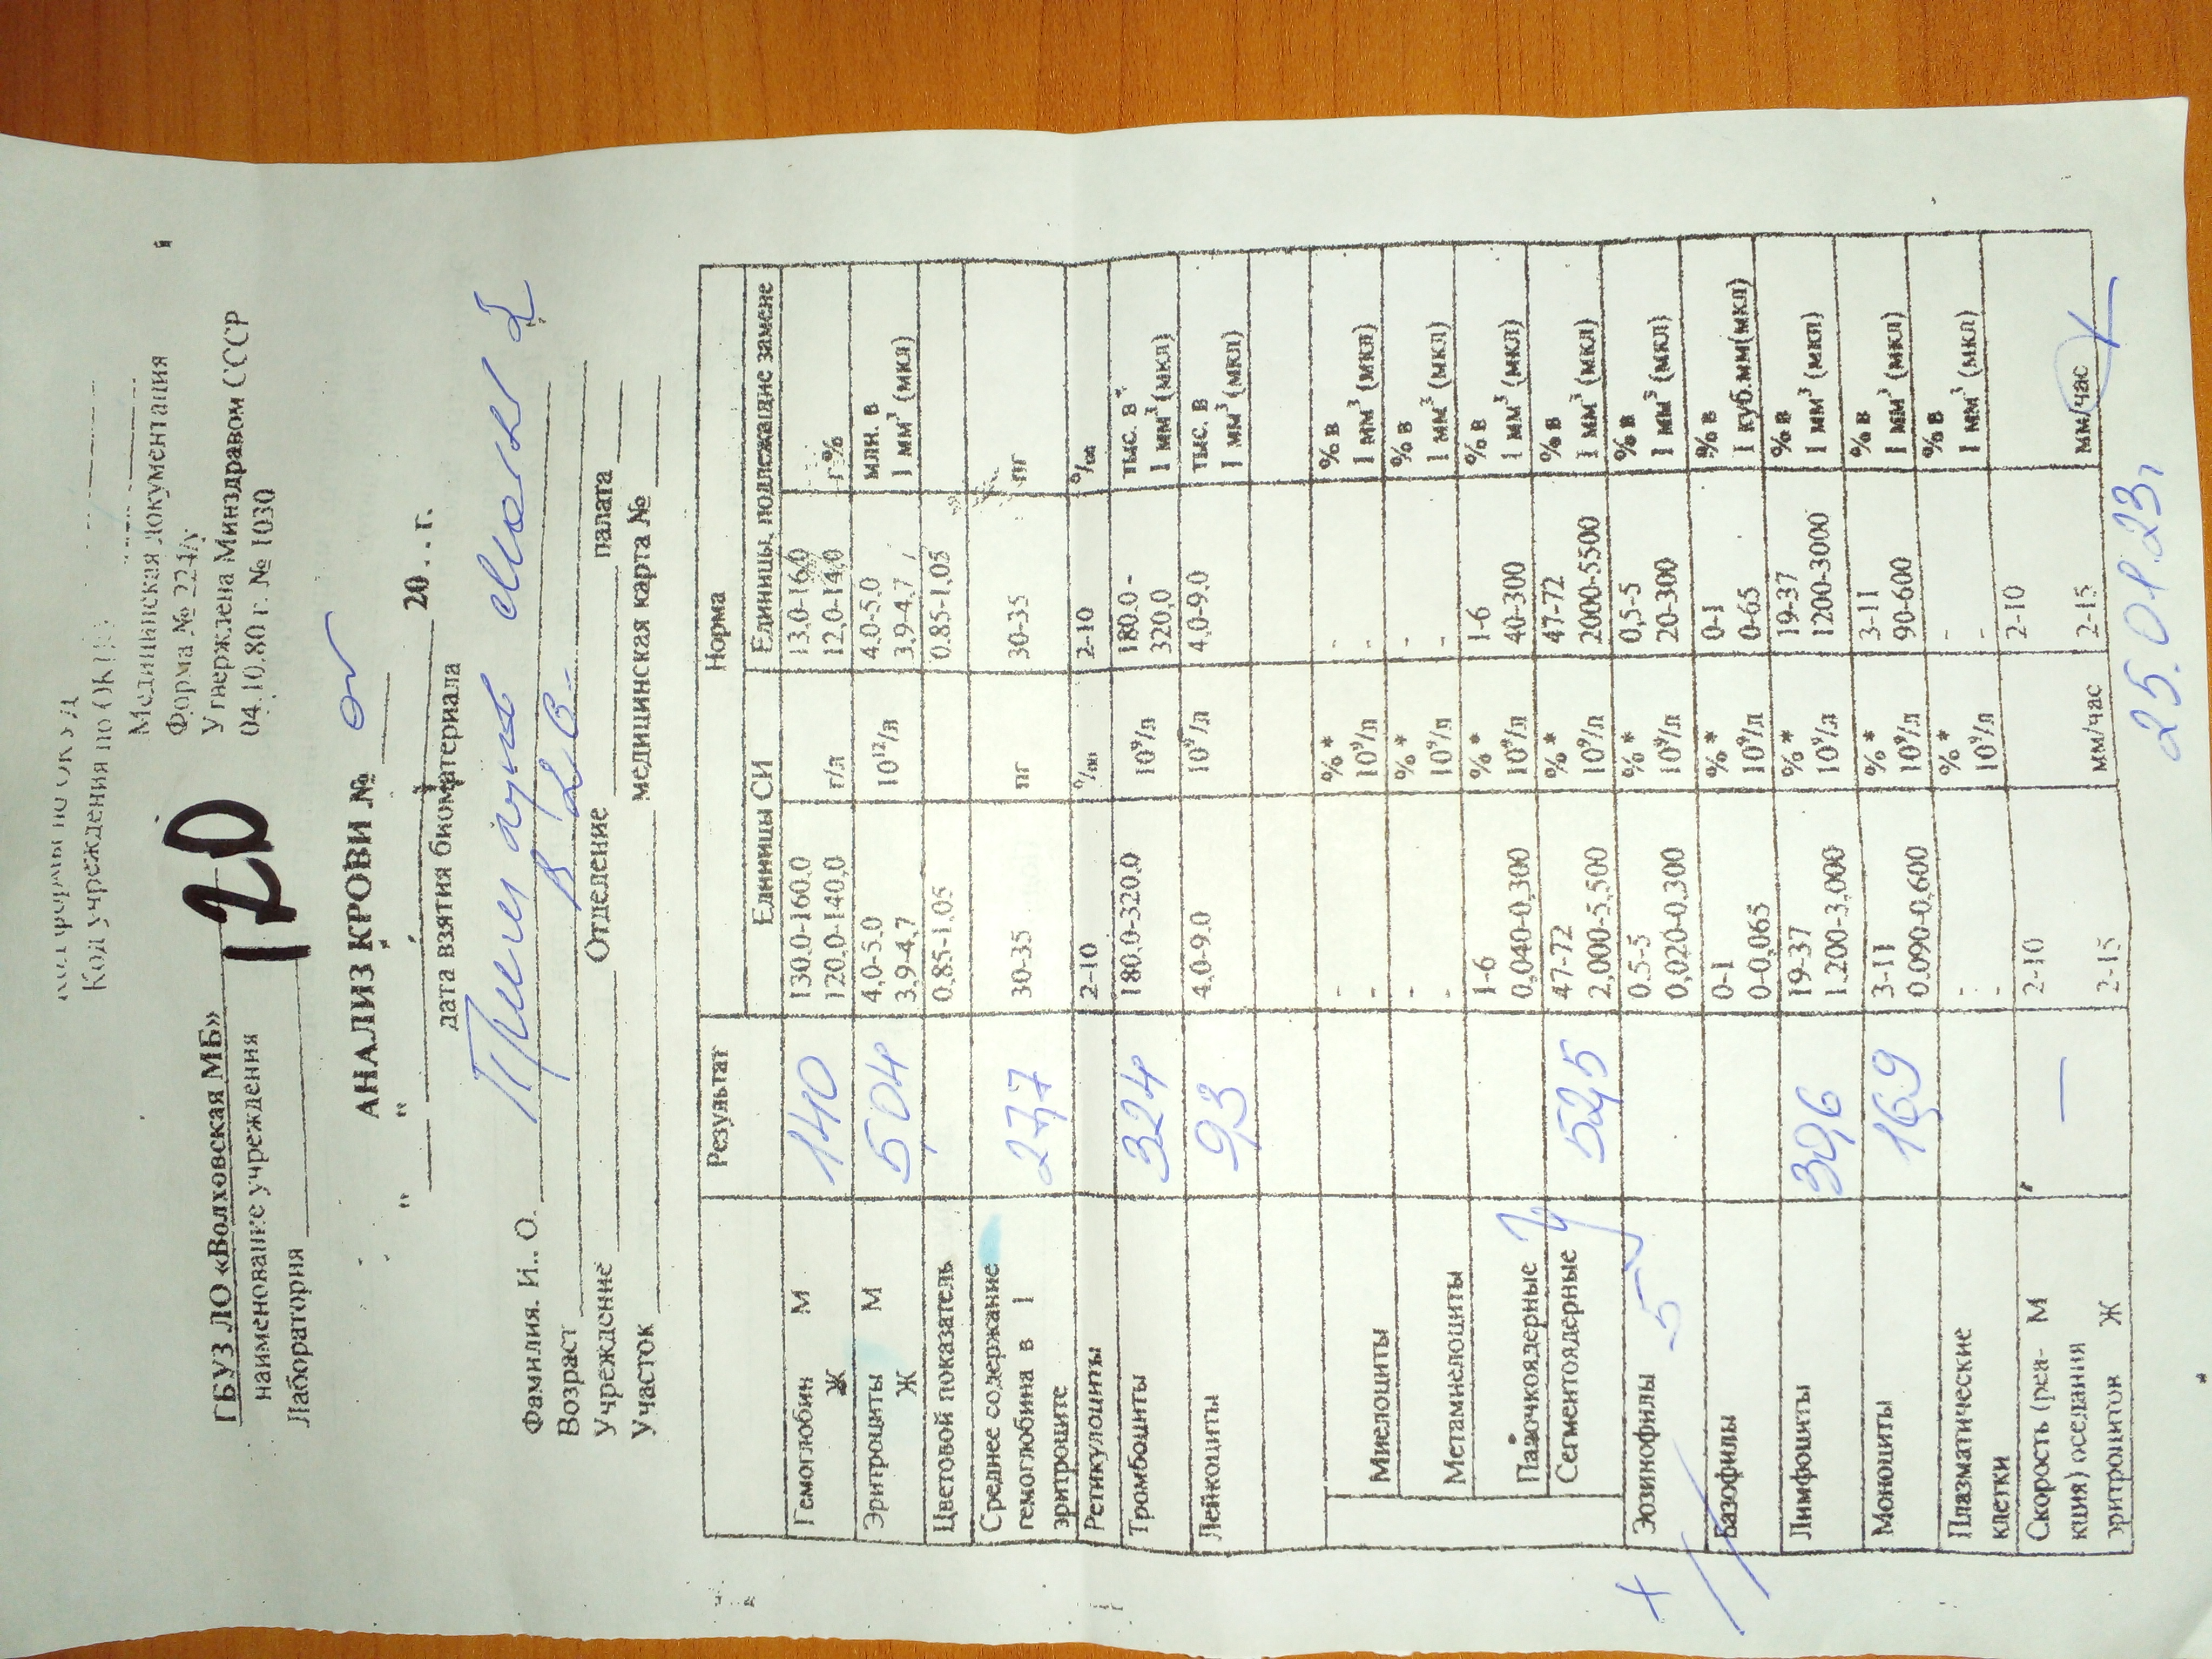 Код формы по ОКУД
Код учреждения по ОКПО
Медицинская документация
Форма № 224/у
Утверждена Минздравом СССР
04.10.80 г. № 1030
ГБУЗ ЛО «Волховская МБ»
120
наименование учреждения
Лаборатория
АНАЛИЗ КРОВИ №
" " 20 . . г.
дата взятия биоматериала
Фамилия. И.. О.
Возраст
Учреждение Отделение палата
Участок медицинская карта №
Результат Норма
Единицы СИ Единицы, подлежащие замене
Гемоглобин М 140 130,0-160,0 13,0-16,0
Ж 120,0-140,0 г/л 12,0-14,0 г%
Эритроциты М 5,04 4,0-5,0 10¹²/л 4,0-5,0 млн. в
Ж 3,9-4,7 3,9-4,7 1 мм³ (мкл)
Цветовой показатель 0,85-1,05 0.85-1,05
Среднее содержание
гемоглобина в 1 27,7 30-35 пг 30-35 пг
эритроците
Ретикулоциты 2-10 ‰ 2-10 ‰
Тромбоциты 324 180,0-320,0 10⁹/л 180,0 - тыс. в
320,0 1 мм³ (мкл)
Лейкоциты 9,3 4,0-9,0 10⁹/л 4,0-9,0 тыс. в
1 мм³ (мкл)
- % * - % в
Миелоциты - 10⁹/л - 1 мм³ (мкл)
- % * - % в
Метамиелоциты - 10⁹/л - 1 мм³ (мкл)
1-6 % * 1-6 % в
Палочкоядерные 0,040-0,300 10⁹/л 40-300 1 мм³ (мкл)
Сегментоядерные 52,5 47-72 % * 47-72 % в
2,000-5,500 10⁹/л 2000-5500 1 мм³ (мкл)
Эозинофилы 5 0.5-5 % * 0,5-5 % в
0,020-0,300 10⁹/л 20-300 1 мм³ (мкл)
Базофилы 0-1 % * 0-1 % в
0-0,065 10⁹/л 0-65 1 куб.мм(мкл)
Лимфоциты 30,6 19-37 % * 19-37 % в
1.200-3,000 10⁹/л 1200-3000 1 мм³ (мкл)
Моноциты 16,9 3-11 % * 3-11 % в
0.090-0,600 10⁹/л 90-600 1 мм³ (мкл)
Плазматические - % * - % в
клетки - 10⁹/л - 1 мм³ (мкл)
Скорость (реа- М — 2-10 2-10
кция) оседания
эритроцитов Ж 2-15 мм/час 2-15 мм/час
25.01.23г